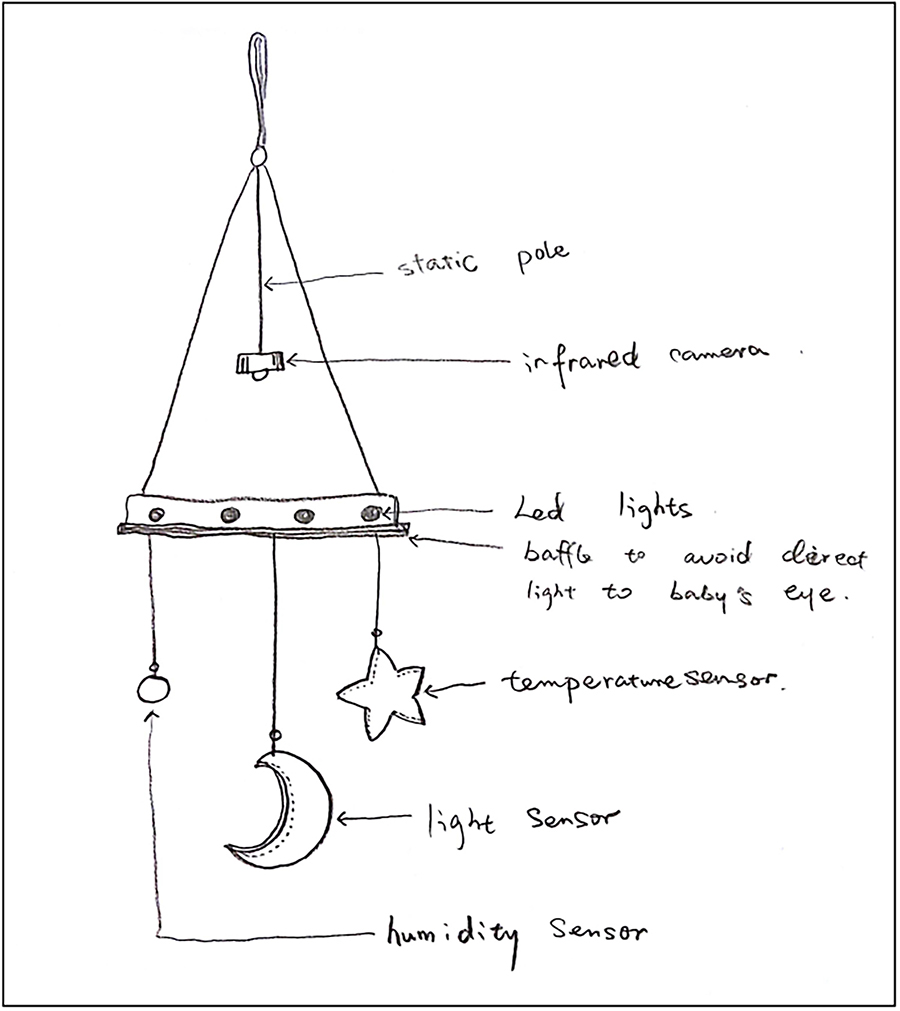 static pole
infrared camera
Led lights
baffle to avoid direct
light to baby's eye.
temperature sensor.
light sensor
humidity sensor